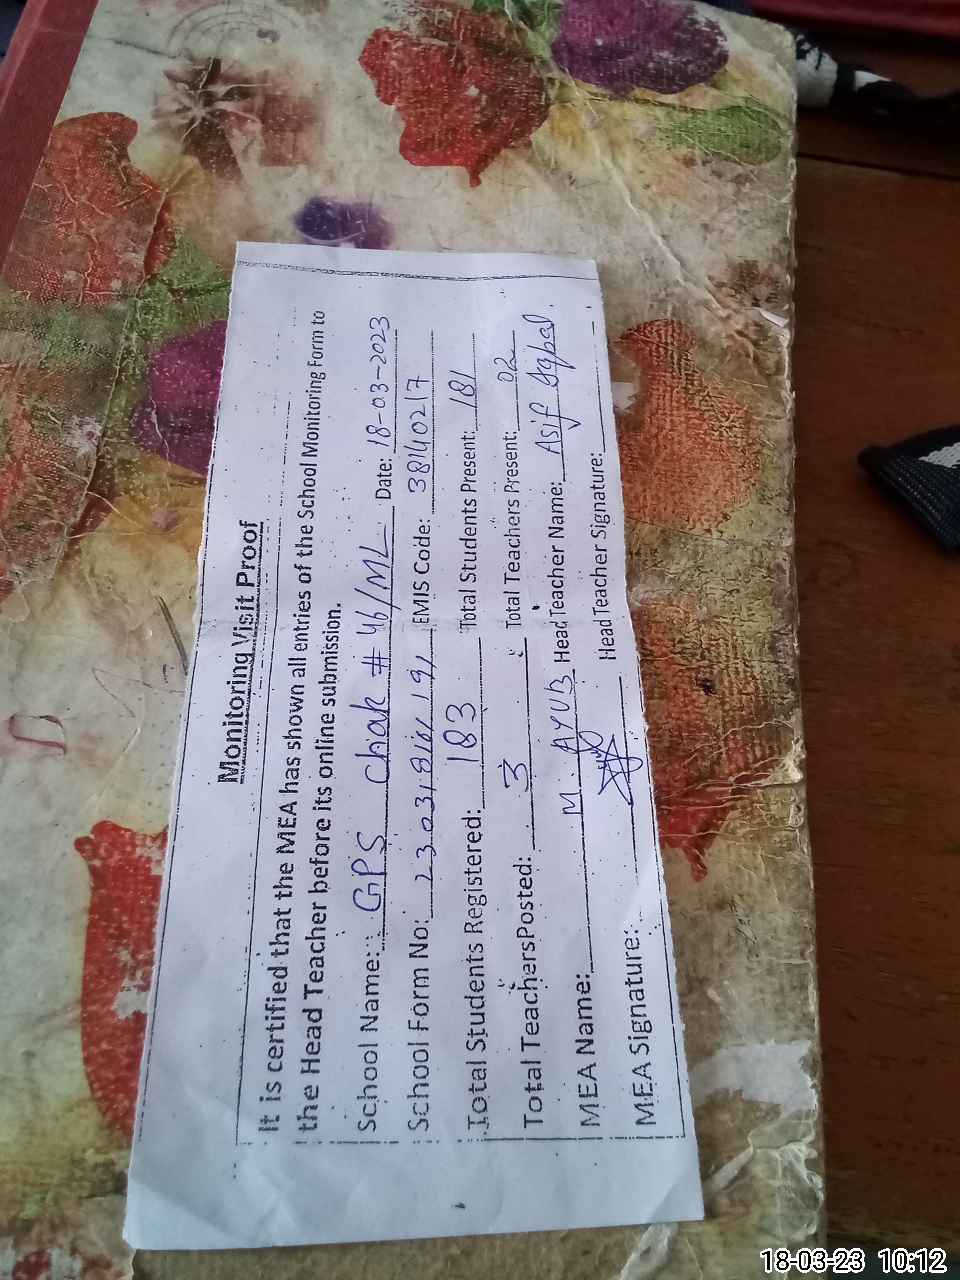 Monitoring Visit Proof
It is certified that the MEA has shown all entries of the School Monitoring Form to
the Head Teacher before its online submission.
School Name: GPS Chak # 46/ML Date: 18-03-2023
School Form No: EMIS Code: 38140217
Total Students Registered: 183 Total Students Present: 181
Total Teachers Posted: 3 Total Teachers Present: 02
MEA Name: M. AYUB Head Teacher Name: Asif Iqbal
MEA Signature: Head Teacher Signature:
18-03-23 10:12